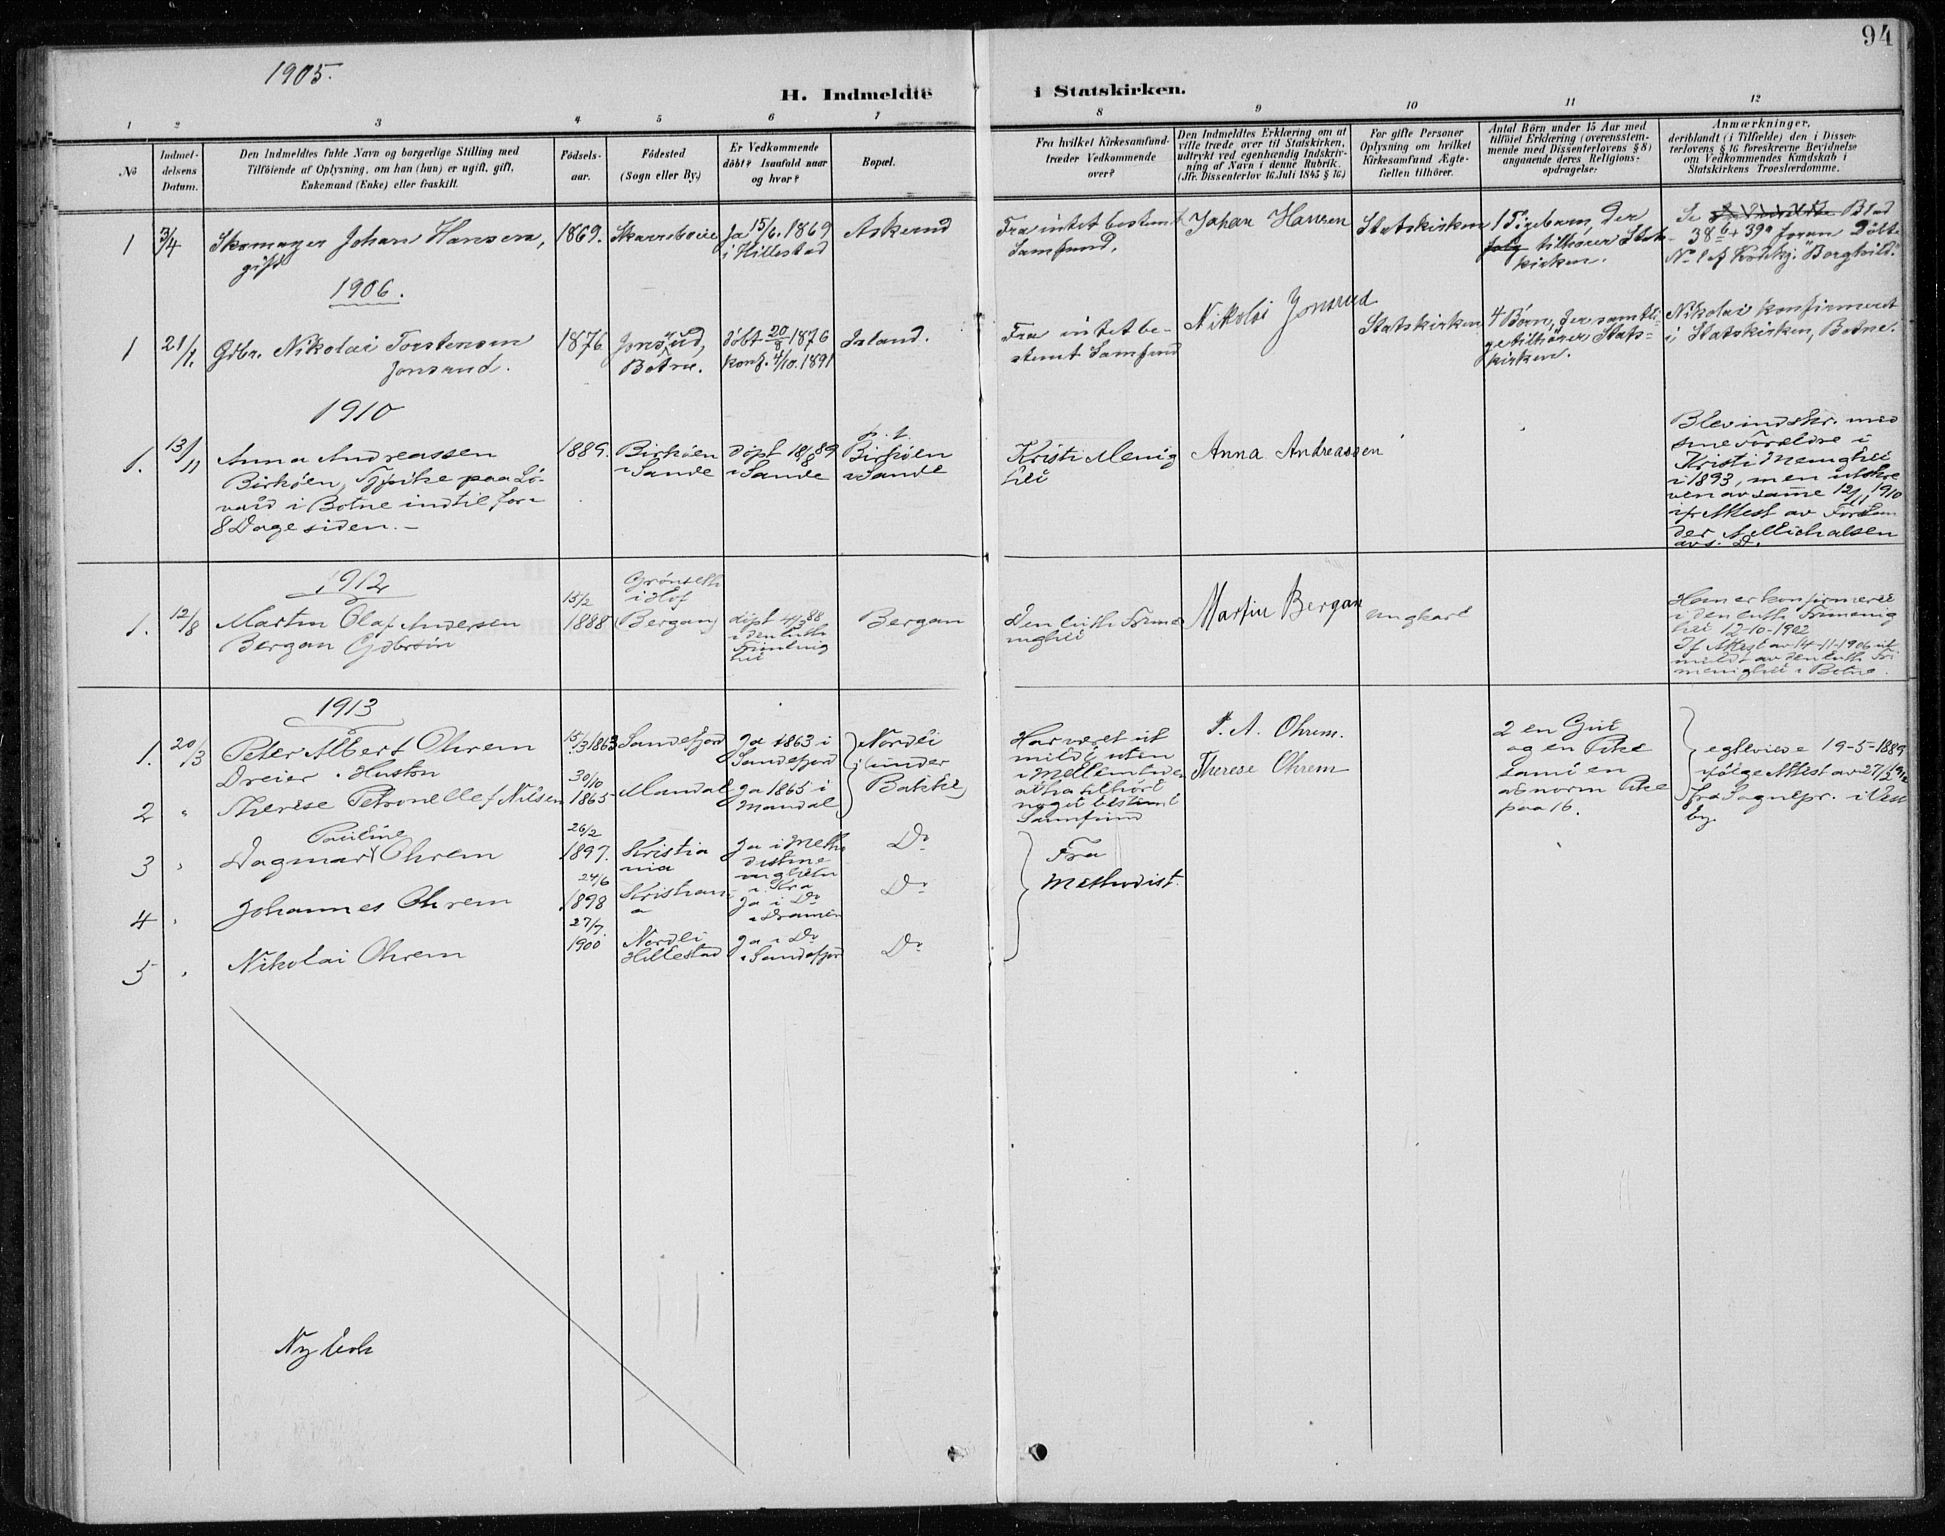 94
1905.
H. Indmeldte i Statskirken.
1 2 3 4 5 6 7 8 9 10 11 12
No
Indmel-
delsens
Datum.
Den Indmeldtes fulde Navn og borgerlige Stilling med
Tilföiende af Oplysning, om han (hun) er ugift, gift,
Enkemand (Enke) eller fraskilt.
Födsels-
aar.
Födested
(Sogn eller By.)
Er Vedkommende
döbt? Isaafald naar
og hvor?
Bopæl.
Fra hvilket Kirkesamfund
træder Vedkommende
over?
Den Indmeldtes Erklæring om at
ville træde over til Statskirken,
udtrykt ved egenhændig Indskriv-
ning af Navn i denne Rubrik.
(Jfr. Dissenterlov 16. Juli 1845 § 16.)
For gifte Personer
Oplysning om hvilket
Kirkesamfund Ægte-
fællen tilhörer.
Antal Börn under 15 Aar med
tilföiet Erklæring (overensstem-
mende med Dissenterlovens § 8)
angaaende deres Religions-
opdragelse:
Anmærkninger,
deriblandt (i Tilfælde) den i Dissen-
terlovens § 16 foreskrevne Bevidnelse
om Vedkommendes Kundskab i
Statskirkens Troeslærdomme.
1
3/4
Skomager Johan Hansen,
gift
1869.
Ja 15/6. 1869
i Hillestad
Askerud
Fra intet bestemt
Samfund.
Johan Hansen
Statskirken
1 Pigebarn, der
tilhører Stats-
kirken.
Se Blad
38b + 39a foran Døbte
1906.
1
21/1.
Gdbr. Nikolai Torstensen
Jonsrud.
1876
Jonsrud,
Botne.
døbt 20/8 1876
konf. 4/10. 1891
Fra intet be-
stemt Samfund
Nikolai Jonsrud
Statskirken
4 Børn, der samtli-
ge tilhører Stats-
kirken.
Nikolai konfirmeret
i Statskirken, Botne.
1910
1.
13/11
Anna Andreassen
Birkøen, paa Lø-
vald i Botne indtil for
8 Dage siden. –
1889.
Birkøen
i Sande
døpt 18/8 89
i Sande
p. t.
Birkøen
i Sande
Kristi Menig
het
Anna Andreassen
Blev indskr. med
sine Forældre i
Kristi Menighet
i 1893, men utskre
ven av samme 12/11 1910
ifr Attest av Forstan
der A. Michalsen
avs. D.
1912
1.
12/8
Martin Olaf Andersen
Bergan Gdbrsøn
15/2
1888
i Hof
(Bergan)
døpt 4/3 88
i den luth
Frimenig
het
Bergan
Den luth Frime
nighet
Martin Bergan
ungkarl
Han er konfirmeret
i den luth Frimenig
het 12-10-1902
If Attest av 14-11-1906 ut
meldt av den luth Fri
menighet i Botne.
1913
1.
20/3
Peter Albert Ohrem
Dreier. Huston
15/3 1863
Sandefjord
Ja 1863 i
Sandefjord
Nordli
under
Bakke
Har været ut
meldt uten
i Mellemtiden
at ha tilhørt
noget bestemt
Samfund
P. A. Ohrem.
2 en Gut
og en Pike
samt en
abnorm Pike
paa 16.
egteviede 19-5-1889
ifølge Attest av 27/2 1912
fra Sognepr. i Vest
by.
2 "
Therese Petronelle f Nilsen
30/10
1865
Mandal
Ja 1865 i
Mandal
Therese Ohrem
3 "
Pauline
Dagmar Ohrem
26/2
1897.
Kristia
nia
Ja i Metho
distme
nigheten
i Kra
Do
Fra
Methodist.
4 "
Johannes Ohrem
24/6
1898
Kristiani
a
Ja i Do
i Dramen
Do
5 "
Nikolai Ohrem
27/7.
1900
Nordli
Hillestad
Ja i Do
i Sandefjord
Do
Ny bok